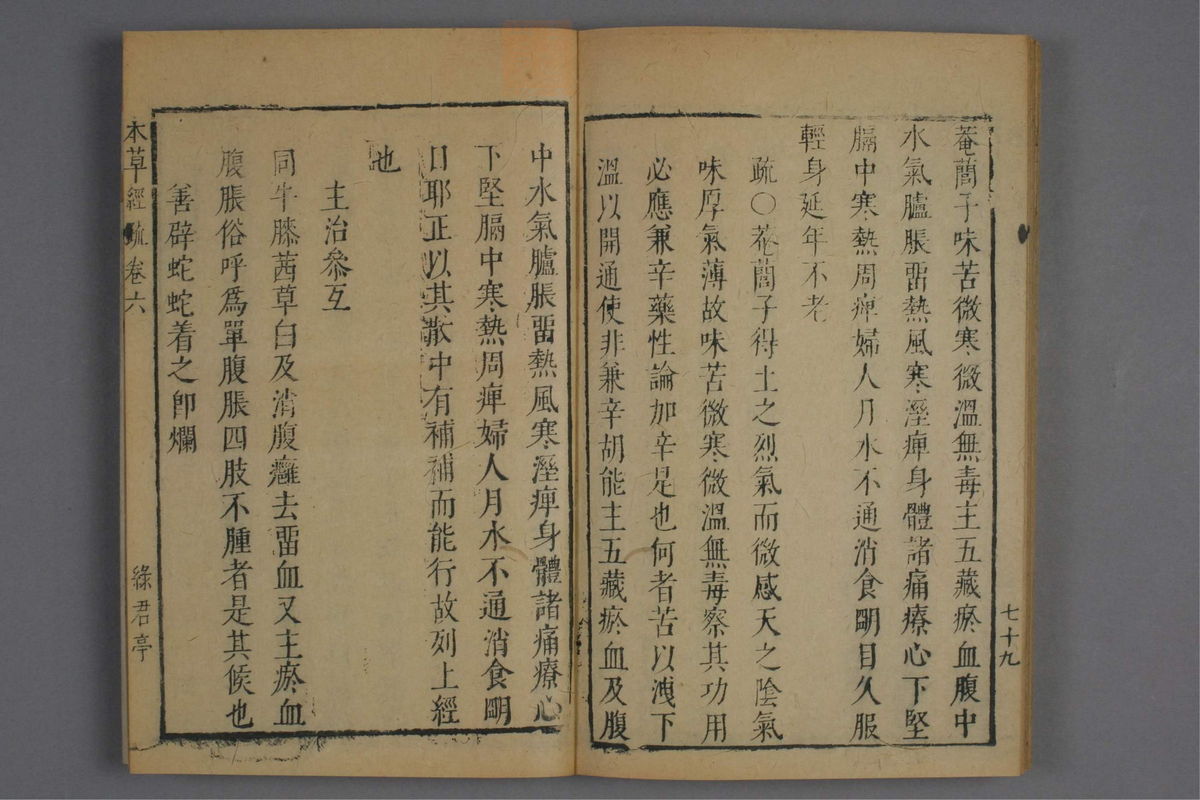 菴䕡子味苦微寒微溫無毒主五藏瘀血腹中
水氣臚脹畱熱風寒溼痺身體諸痛療心下堅
膈中寒熱周痺婦人月水不通消食朙目久服
輕身延年不老
疏〇菴䕡子得土之烈氣而微感天之陰氣
味厚氣薄故味苦微寒微溫無毒察其功用
必應兼辛藥性論加辛是也何者苦以洩下
溫以開通使非兼辛胡能主五藏瘀血及腹
七十九
中水氣臚脹畱熱風寒溼痺身體諸痛療心
下堅膈中寒熱周痺婦人月水不通消食朙
目耶正以其散中有補補而能行故列上經
也
主治參互
同牛膝茜草白及消腹癰去畱血又主瘀血
腹脹俗呼爲單腹脹四肢不腫者是其候也
善辟蛇蛇着之卽爛
本草經疏卷六
綠君亭